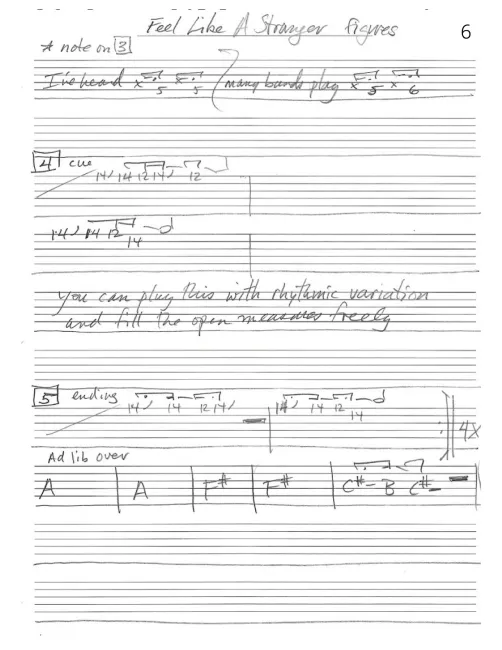 Feel Like A Stranger figures
6
* note on 3
I've heard x 5 x 5 (many bands play x 5 x 6
4 cue 14 14 12 14 12
14 14 12 14
you can play this with rhythmic variation
and fill the open measures freely
5 ending 14 14 12 14 14 14 12 14
4X
Ad lib over
A A F# F# C#- B C#-